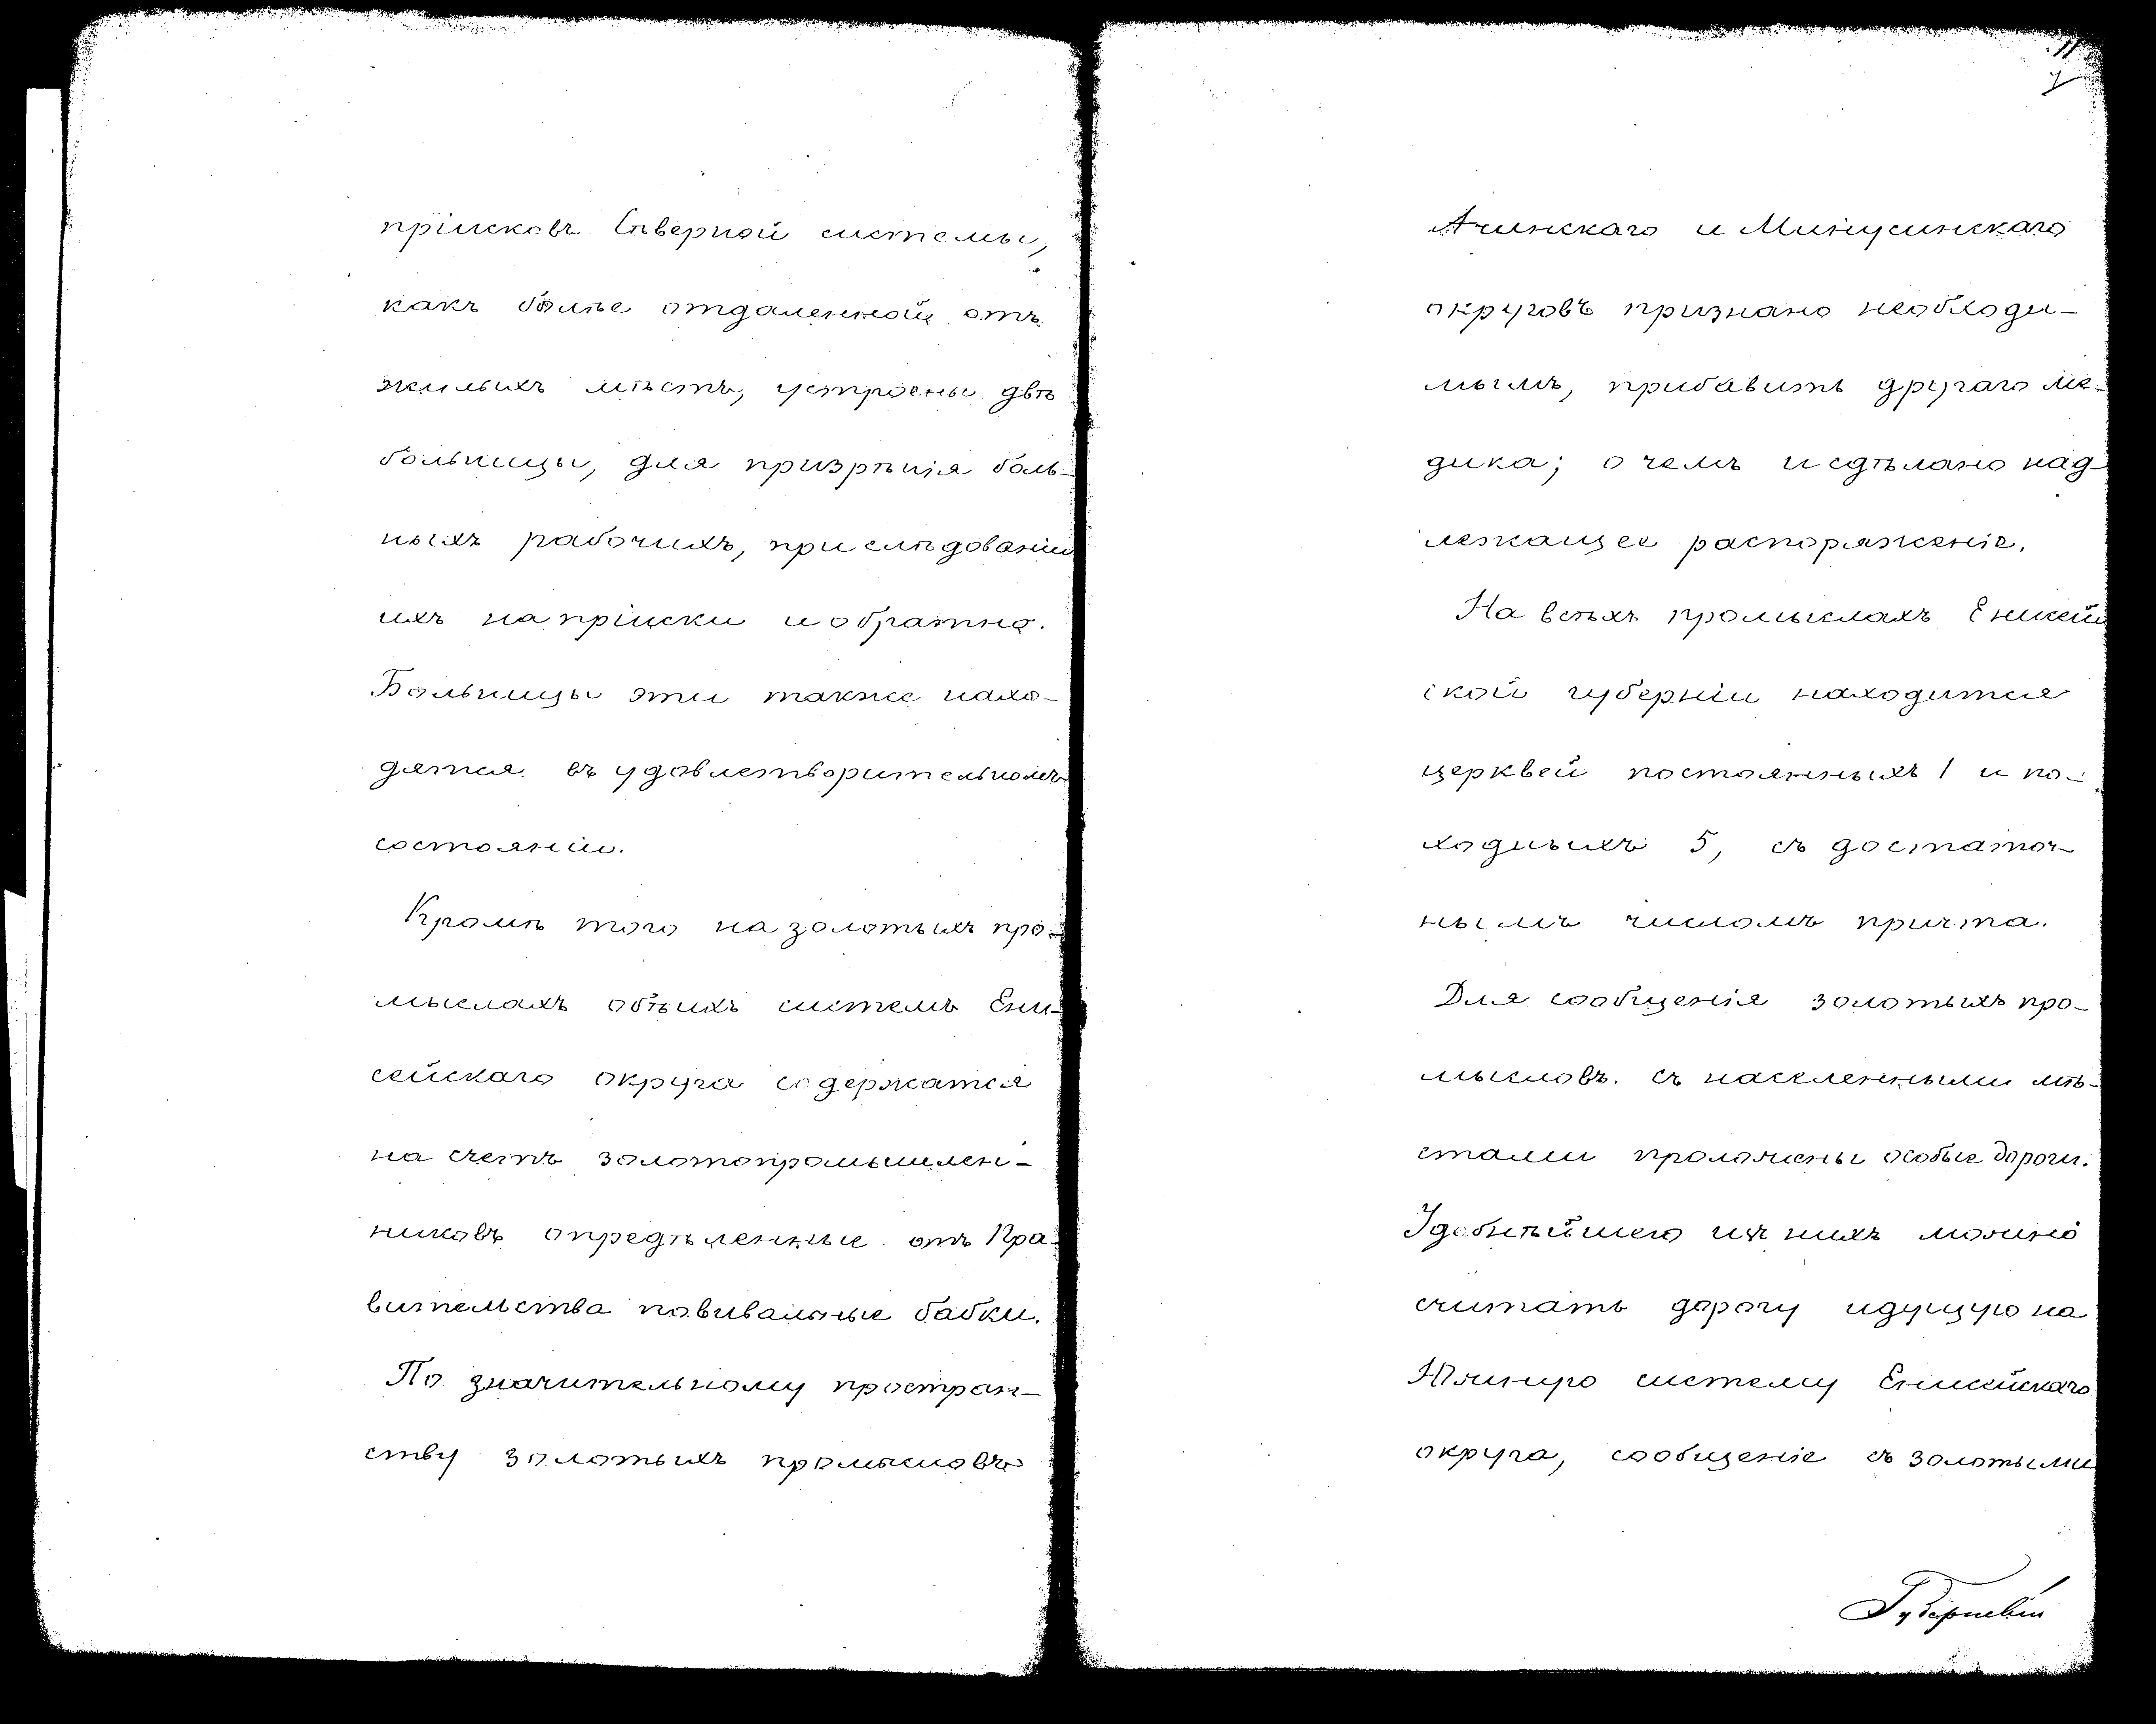 пріисковъ Сѣверной системы,
какъ болѣе отдаленной отъ
жилыхъ мѣстъ, устроены двѣ
больницы, для призрѣнія боль-
ныхъ рабочихъ, при слѣдованіи
ихъ на пріиски и обратно.
Больницы эти также нахо-
дятся въ удовлетворительномъ
состояніи.
Кромѣ того на золотыхъ про-
мыслахъ обѣихъ системъ Ени-
сейскаго округа содержатся
на счетъ золотопромышлен-
никовъ опредѣленные отъ Пра-
вительства повивальные бабки.
По значительному простран-
ству золотыхъ промысловъ
11
7
Ачинскаго и Минусинскаго
округовъ признано необходи-
мымъ, прибавить другаго ме-
дика; о чемъ и сдѣлано над-
лежащее распоряженіе.
На всѣхъ промыслахъ Енисей
ской губерніи находится
церквей постоянныхъ 1 и по-
ходныхъ 5, съ достаточ-
нымъ числомъ причта.
Для сообщенія золотыхъ про-
мысловъ съ населенными мѣ-
стами проложены особые дороги.
Удобнѣйшею изъ нихъ можно
считать дорогу идущую на
Южную систему Енисейскаго
округа, сообщеніе съ золотыми